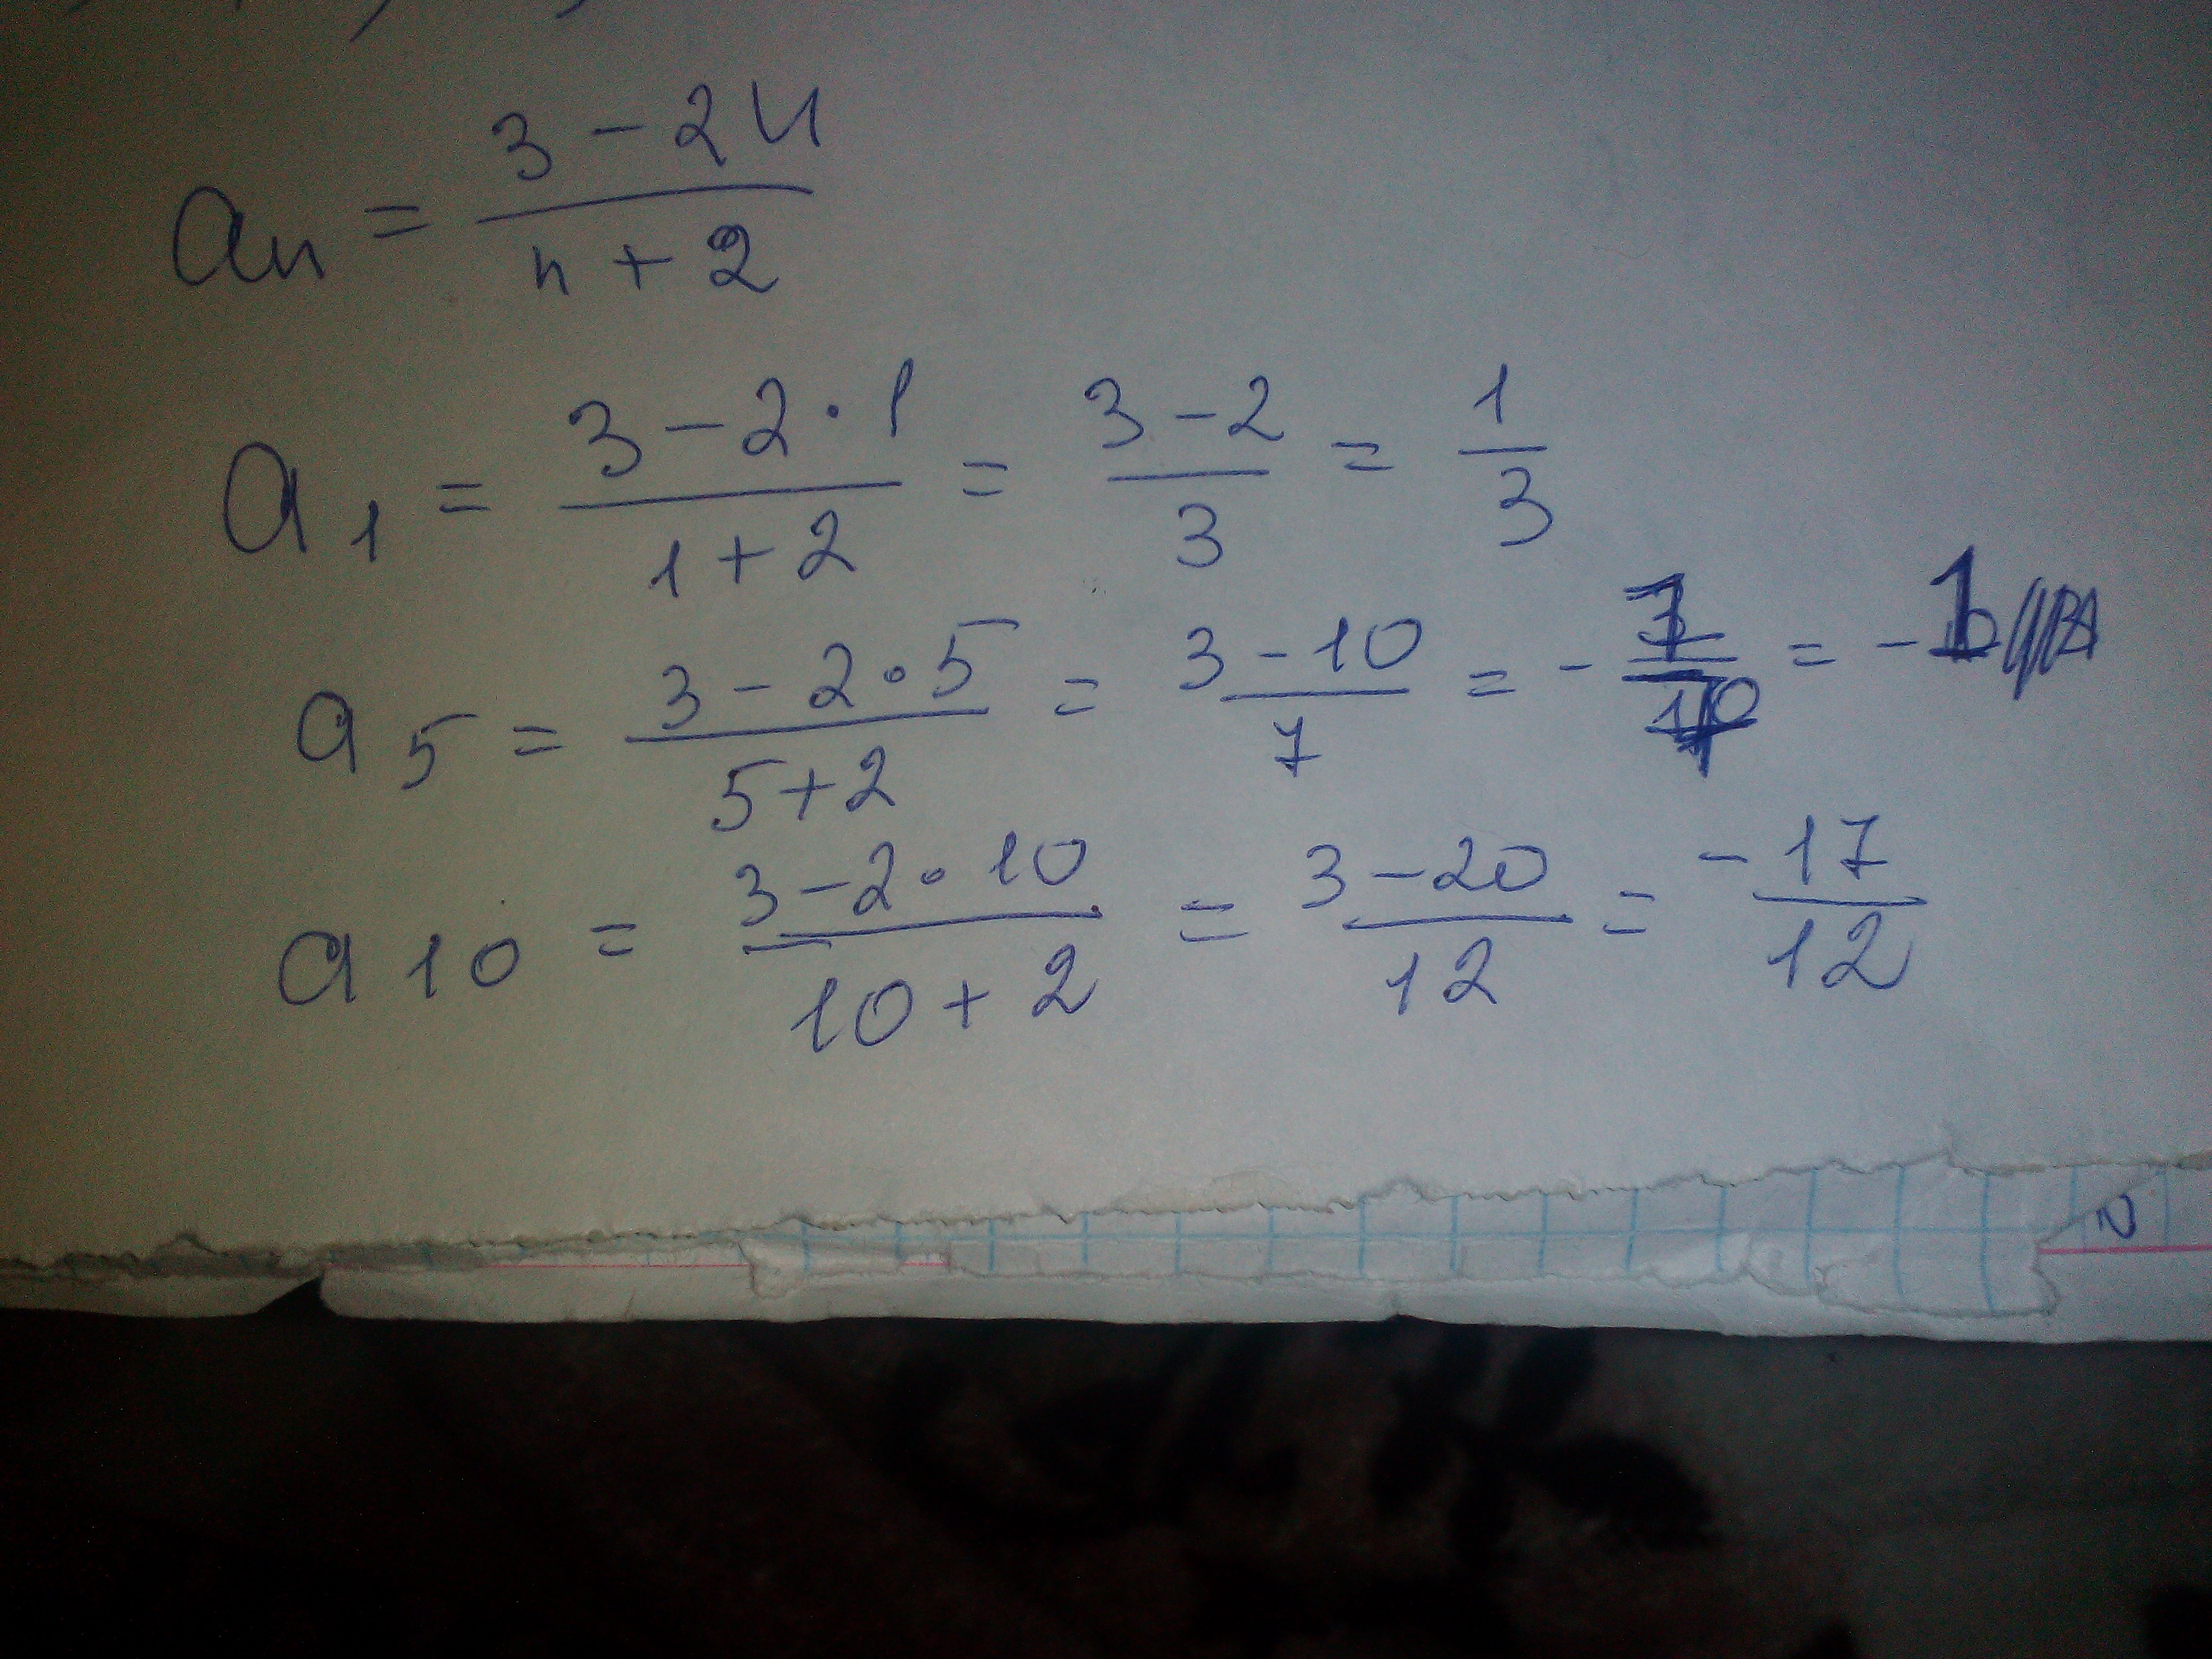 an = (3 - 2n)/(n + 2)
a1 = (3 - 2·1)/(1 + 2) = (3 - 2)/3 = 1/3
a5 = (3 - 2·5)/(5 + 2) = (3 - 10)/7 = -7/7 = -1
a10 = (3 - 2·10)/(10 + 2) = (3 - 20)/12 = -17/12